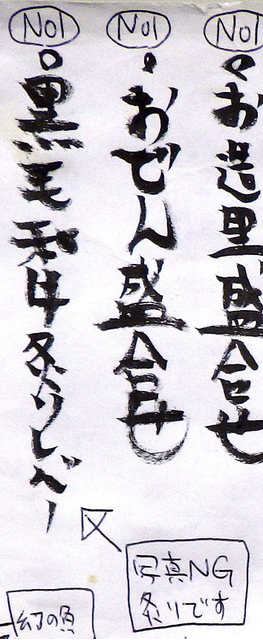 No1
お造里盛合せ
No1
おでん盛合せ
No1
黒毛和牛炙りレバー
写真NG
炙りです
幻の魚